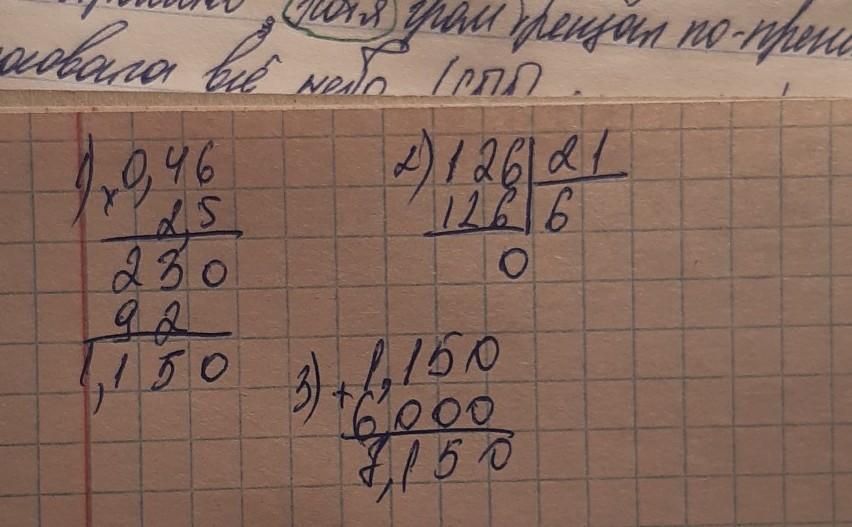 гром трещал по-преж
всё небо
1) 0,46
× 2,5
230
92
1,150
2) 126 | 21
126 | 6
0
3) 1,150
+ 6,000
7,150